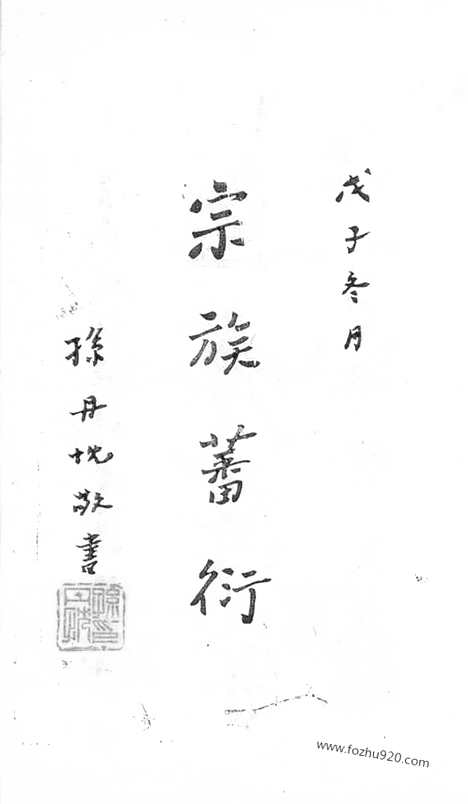 戊子冬月
宗族蕃衍
孫丹忱敬書
www.fozhu920.com